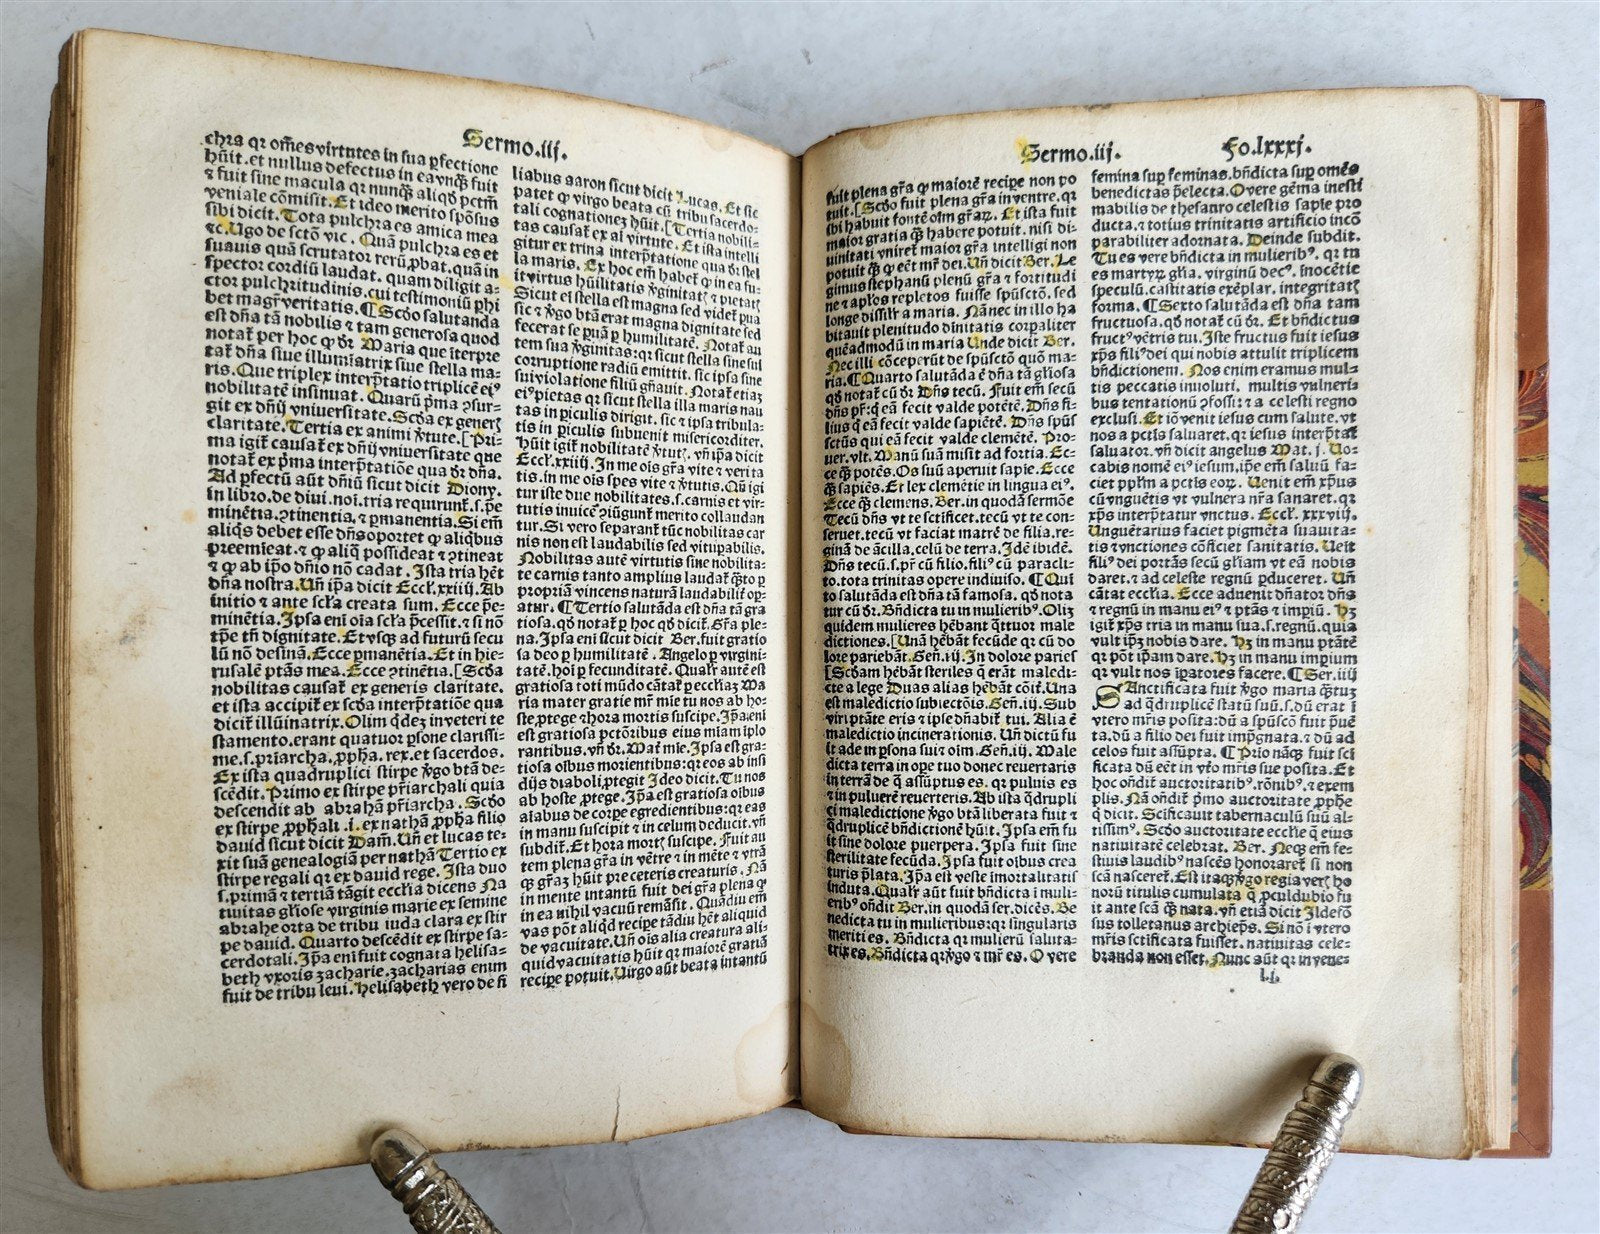 Sermo.iij.
chra qr om̄es virtutes in sua ꝑfectione
hūit.et nullus defectus in ea vnq̄ꝫ fuit
⁊ fuit sine macula qr nunq̄ꝫ aliqd̓ pctm̄
veniale cōmisit. Et ideo merito spōsus
sibi dicit. Tota pulchra es amica mea
⁊c. Ugo de sctō vic. Quā pulchra es et
suauis quā scrutator rerū ꝓbat. quā in
spector cordiū laudat. quam diligit a-
ctor pulchritudinis. cui testimoniū phi
bet magr̄ veritatis. ¶ Scd̓o salutanda
est dn̄a tā nobilis ⁊ tam generosa quod
notat̄ per hoc ꝙ dr̄ Maria que īterpre
tat̄ dn̄a siue illumīatrix siue stella ma-
ris. Que triplex interp̄tatio triplicē ei⁹
nobilitatē insinuat. Quarū p̄ma ꝯsur-
git ex dn̄ij vniuersitate. Scd̓a ex gener̄
claritate. Tertia ex animi v̓tute. [Pri-
ma igit̄ causat̄ ex dn̄ij vniuersitate que
notat̄ ex p̄ma interp̄tatiōe qua dr̄ dn̄a.
Ad ꝑfectū aūt dn̄iū sicut dicit Diony.
in libro. de diui. noi. tria requirunt̄. s. p̄e
minētia. ꝯtinentia. ⁊ ꝑmanentia. Si em̄
aliqs debet esse dn̄s oportet ꝙ aliqbus
preemieat ⁊ ꝙ aliq̄ possideat ⁊ ꝯtineat
⁊ ꝙ ab ip̄o dn̄io nō cadat. Ista tria hēt
dn̄a nostra. Un̄ ip̄a dicit Eccl̄. xxiiij. Ab
initio ⁊ ante scl̄a creata sum. Ecce p̄e-
minētia. Ipsa eni oīa scl̄a p̄cessit. ⁊ si nō
tp̄e tn̄ dignitate. Et vsq̄ꝫ ad futurū secu
lū nō desinā. Ecce ꝑmanētia. Et in hie-
rusalē ptās mea. Ecce ꝯtinētia. [Scd̓a
nobilitas causat̄ ex generis claritate.
et ista accipit̄ ex scd̓a interp̄tatiōe qua
dicit̄ illūinatrix. Olim q̓dez in veteri te
stamento. erant quatuor ꝑsone clarissi-
me. s. p̄riarcha. ꝓpha. rex. et sacerdos.
Ex ista quadruplici stirpe v̓go btā de-
scēdit. Primo ex stirpe p̄riarchali quia
descendit ab abrahā p̄riarcha. Scd̓o
ex stirpe ꝓphali .i. ex nathā ꝓpha filio
dauid sicut dicit Dam̄. Un̄ et lucas te-
xit suā genealogiā per nathā Tertio ex
stirpe regali qr ex dauid rege. Ista duo
s. primā ⁊ tertiā tāgit eccl̄ia dicens Na
tiuitas gl̄iose virginis marie ex semine
abrahe orta de tribu iuda clara ex stir
pe dauid. Quarto descēdit ex stirpe sa-
cerdotali. Ip̄a eni fuit cognata helisa-
beth vxoris zacharie. zacharias enim
fuit de tribu leui. Helisabeth vero de fi
liabus aaron sicut dicit Lucas. Et sic
patet ꝙ virgo beata cū tribu sacerdo-
tali cognationez hūit. [Tertia nobili-
tas causat̄ ex al virtute. Et ista intelli
gitur ex trina interp̄tatione qua dr̄ stel
la maris. Ex hoc em̄ habet̄ ꝙ in ea fu-
it virtus hūilitatis v̓ginitatꝭ ⁊ pietatꝭ
Sicut el stella est magna sed videt̄ ꝑua
sic ⁊ v̓go btā erat magna dignitate sed
fecerat se ꝑuā ꝑ humilitatē. Notat̄ au
tem sua v̓ginitas: qr sicut stella sine sui
corruptione radiū emittit. sic ipsa sine
sui violatione filiū gn̄auit. Notat̄ etiaꝫ
ei⁹ pietas qr sicut stella illa maris nau
tas in ꝑiculis dirigit. sic ⁊ ipsa tribula-
tis in ꝑiculis subuenit misericorditer.
Hūit igit̄ nobilitatē v̓tutꝭ. vn̄ ip̄a dicit
Eccl̄. xxiiij. In me oīs gr̄a vite ⁊ verita
tis. in me oīs spes vite ⁊ v̓tutis. Qn̄ igi
tur iste due nobilitates. s. carnis et vir-
tutis inuicē ꝯiūgunt̄ merito collaudan
tur. Si vero separant̄ tūc nobilitas car
nis non est laudabilis sed vitupabilis.
Nobilitas autē virtutis sine nobilita-
te carnis tanto amplius laudat̄ q̄to ꝑ
propriā vincens naturā laudabilit̄ oꝑ-
atur. ¶ Tertio salutāda est dn̄a tā gra
tiosa. qd̓ notat̄ ꝑ hoc qd̓ dicit̄. Gr̄a ple-
na. Ipsa eni sicut dicit Ber. fuit gratio
sa deo ꝑ humilitatē. Angelo ꝑ virgini-
tatē. hoi ꝑ fecunditatē. Qualr̄ autē est
gratiosa toti mūdo cātat̄ ꝑ eccl̄iaꝫ Ma
ria mater gratie mr̄ mīe tu nos ab ho-
ste, ꝓtege ⁊ hora mortis suscipe. Ip̄a eni
est gratiosa pctōribus eius miam īplo
rantibus. vn̄ dr̄. Mat̄ mie. Ipsa est gra-
tiosa oībus morientibus: qr eos ab insi
dijs diaboli ꝓtegit Ideo dicit. Tu nos
ab hoste ꝓtege. Ip̄a est gratiosa oībus
aīabus de corpe egredientibus: qr eas
in manu suscipit ⁊ in celum deducit. vn̄
subdit̄. Et hora mortꝭ suscipe. Fuit au
tem plena gr̄a in vētre ⁊ in mēte ⁊ vtrā
q̄ꝫ gr̄aꝫ hūit pre ceteris creaturis. Nā
in mente intantū fuit dei gr̄a plena ꝙ
in ea nihil vacuū remāsit. Quādiu em̄
vas pōt aliqd̓ recipe tādiu hēt aliquid
de vacuitate. Un̄ oīs alia creatura ali-
quid vacuitatis hūit qr maiorē gratiā
recipe potuit. Uirgo aūt beata intantū
Sermo.iij. Fo.lxxxj.
fuit plena gr̄a ꝙ maiorē recipe non po
tuit. [Scd̓o fuit plena gr̄a in ventre. qr
ibi habuit fontē oīm gr̄aꝝ. Et ista fuit
maior gratia q̄ꝫ habere potuit. nisi di-
uinitati vniret̄ maior gr̄a intelligi non
potuit q̄ꝫ ꝙ eēt mr̄ dei. Un̄ dicit Ber. Le
gimus stephanū plenū gr̄a ⁊ fortitudi
ne ⁊ apl̄os repletos fuisse spūsctō. sed
longe dissil̄r a maria. Nā nec in illo ha
bitauit plenitudo diuinitatis corꝑaliter
quēadmodū in maria Unde dicit Ber.
Nec illi cōceperūt de spūsctō quō ma-
ria. ¶ Quarto salutāda ē dn̄a tā gl̄iosa
qd̓ notat̄ cū dr̄. Dn̄s tecū. Fuit em̄ secū
dn̄s pr̄: q̓ eā fecit valde potētē. Dn̄s fi-
lius q̓ eā fecit valde sapiētē. Dn̄s spūs
sctūs qui eā fecit valde clemētē. Pro-
uer. vlt. Manū suā misit ad fortia. Ec-
ce q̄ꝫ potēs. Os suū aperuit sapie. Ecce
q̄ꝫ sapiēs. Et lex clemētie in lingua ei⁹.
Ecce q̄ꝫ clemens. Ber. in quodā sermōe
Tecū dn̄s vt te sctificet. tecū vt te con-
seruet. tecū vt faciat matrē de filia. re-
ginā de ācilla. celū de terra. Idē ibidē.
Dn̄s tecū. s. pr̄ cū filio. fili⁹ cū paracli-
to. tota trinitas opere indiuiso. ¶ Qui
to salutāda est dn̄a tā famosa. qd̓ nota
tur cū dr̄. Bn̄dicta tu in mulierib⁹. Oliꝫ
quidem mulieres hēbant q̄ttuor male
dictiones. [Unā hēbāt fecūde qr cū do
lore pariebāt. Gen̄. iij. In dolore paries
[Scd̓am hēbāt steriles q̓ erāt maledi-
cte a lege Duas alias hēbāt cōit̄. Una
est maledictio subiectōis. Gen̄. iij. Sub
viri ptāte eris ⁊ ipse dn̄abit̄ tui. Alia ē
maledictio incinerationis. Un̄ dictū fu
it ade in ꝑsona sui ⁊ oīm. Gen̄. iij. Male
dicta terra in ope tuo donec reuertaris
in terrā de q̄ assūptus es. qr puluis es
⁊ in puluerē reuerteris. Ab ista q̄drupli
ci maledictione v̓go btā liberata fuit ⁊
q̄druplicē bn̄dictionē hūit. Ipsa em̄ fu
it sine dolore puerpera. Ipsa fuit sine
sterilitate fecūda. Ipsa fuit oībus crea
turis p̄lata. Ip̄a est veste imortalitatis
induta. Qualr̄ aūt fuit bn̄dicta ī muli-
erib⁹ on̄dit Ber. in quodā ser. dicēs. Be
nedicta tu in mulieribus: qr singularis
meriti es. Bn̄dicta qr mulierū saluta-
trix es. Bn̄dicta qr v̓go ⁊ mr̄ es. O vere
femina suꝑ feminas. bn̄dicta suꝑ omēs
benedictas p̄electa. O vere gēma inesti
mabilis de thesauro celestis sapie pro
ducta. ⁊ totius trinitatis artificio incō
parabiliter adornata. Deinde subdit.
Tu es vere bn̄dicta in mulierib⁹. qr tu
es martyꝝ gl̄ia. virginū dec⁹. inocētie
speculū. castitatis exēplar. integritatꝭ
forma. ¶ Sexto salutāda est dn̄a tam
fructuosa. qd̓ notat̄ cū dr̄. Et bn̄dictus
fruct⁹ vētris tui. Iste fructus fuit iesus
xp̄s fili⁹ dei qui nobis attulit triplicem
bn̄dictionem. Nos enim eramus mul-
tis peccatis inuoluti. multis vulneri-
bus tentationū ꝯfossi: ⁊ a celesti regno
exclusi. Et iō venit iesus cum salute. vt
nos a pctīs saluaret. qr iesus interp̄tat̄
saluator. vn̄ dicit angelus Mat. j. Uo-
cabis nomē ei⁹ iesum. ip̄e em̄ saluū fa-
ciet pplm̄ a pctīs eoꝝ. Uenit em̄ xp̄us
cū vnguētis vt vulnera nr̄a sanaret. qr
xp̄s interp̄tatur vnctus. Eccl̄. xxxviij.
Unguētarius faciet pigmēta suauita-
tis ⁊ vnctiones cōficiet sanitatis. Ueīt
fili⁹ dei portās secū gl̄iam vt eā nobis
daret. ⁊ ad celeste regnū ꝑduceret. Un̄
cātat eccl̄ia. Ecce aduenit dn̄ator dn̄s
⁊ regnū in manu ei⁹ ⁊ ptās ⁊ impiū. Hꝫ
igit̄ xp̄s tria in manu sua. s. regnū. quia
vult ip̄ꝫ nobis dare. Hꝫ in manu ptātē
qr pōt ip̄am dare. Hꝫ in manu imꝑium
qr vult nos iꝑatores facere. ¶ Ser. iiij
SAnctificata fuit v̓go maria q̄tuꝫ
ad q̄druplicē statū suū. s. dū erat ī
vtero mr̄is posita: dū a spūscō fuit p̄uē
ta. dū a filio dei fuit imp̄gnata. ⁊ dū ad
celos fuit assūpta. ¶ P̓io nāq̄ꝫ fuit sci
ficata dū eēt in vt̄o mr̄is sue posita. Et
hoc on̄dit̄ auctoritatib⁹. rōnib⁹. ⁊ exem
plis. Nā on̄dit̄ p̄mo auctoritate ꝓphe
q̓ dicit. Scificauit tabernaculū suū al-
tissim⁹. Scd̓o auctoritate eccl̄ie q̄ eius
natiuitatē celebrat. Ber. Neq̄ꝫ em̄ fe-
stiuis laudib⁹ nascēs honoraret̄ si non
scā nasceret̄. Est itaq̄ꝫ v̓go regia verꝭ ho
norū titulis cumulata q̄ ꝓculdubio fu
it ante scā q̄ꝫ nata. vn̄ etiā dicit Ildefō
sus tolletanus archiep̄s. Si nō ī vtero
mr̄is sctificata fuisset. natiuitas cele-
branda non esset. Nunc aūt qr in vene-
l.j.